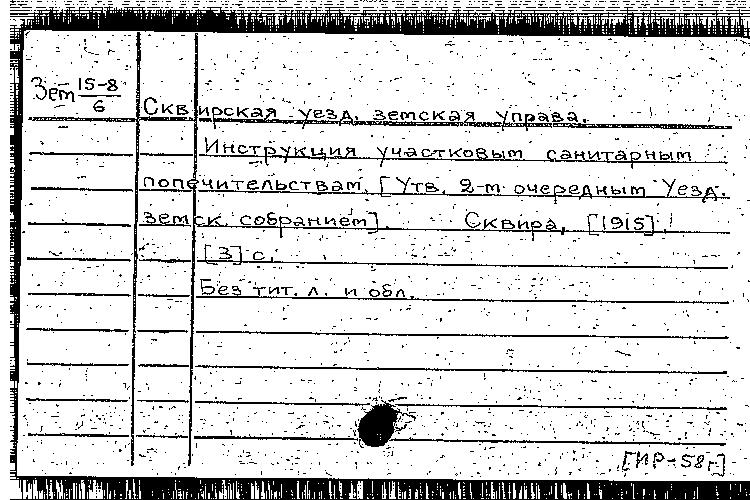 Зем 15-8/6
Сквирская уезд. земская управа.
Инструкция участковым санитарным
попечительствам. [Утв. 2-м очередным Уезд.
земск. собранием]. Сквира, [1915].
[3] с.
Без тит. л. и обл.
[ИР-58г]